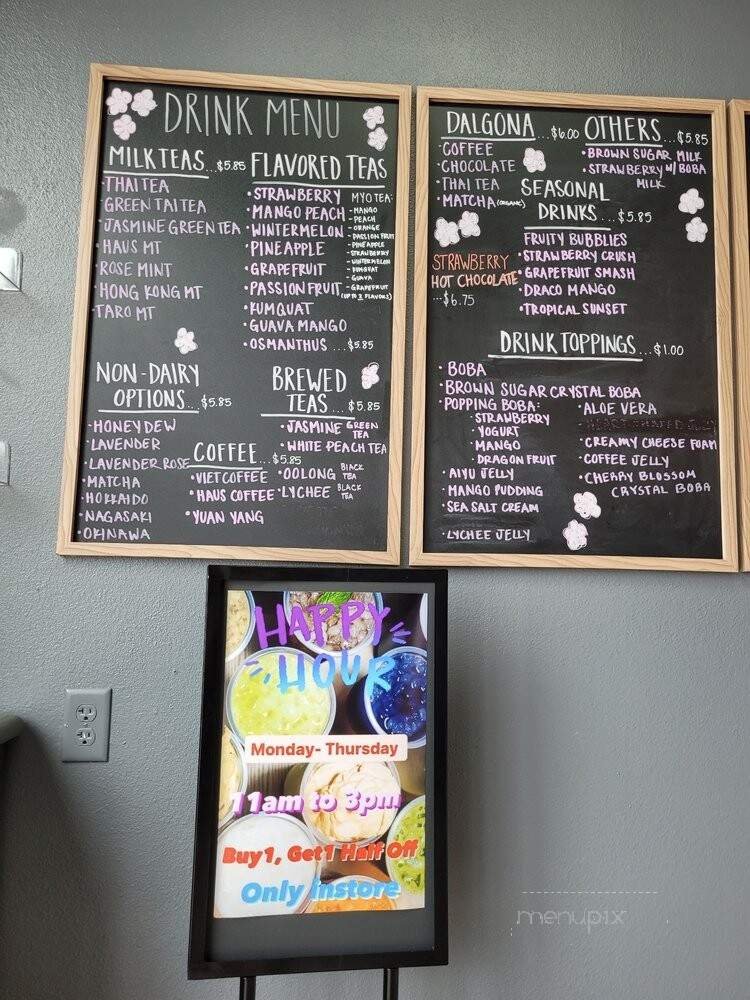 DRINK MENU
MILK TEAS...$5.85
THAI TEA
GREEN TAI TEA
JASMINE GREEN TEA
HAUS MT
ROSE MINT
HONG KONG MT
TARO MT
FLAVORED TEAS
STRAWBERRY
MANGO PEACH
WINTERMELON
PINEAPPLE
GRAPEFRUIT
PASSION FRUIT
KUMQUAT
GUAVA MANGO
OSMANTHUS...$5.85
MYO TEA:
- MANGO
- PEACH
- ORANGE
- PASSION FRUIT
- PINEAPPLE
- STRAWBERRY
- WINTERMELON
- KUMQUAT
- GUAVA
- GRAPEFRUIT
(UP TO 2 FLAVORS)
NON-DAIRY
OPTIONS...$5.85
HONEYDEW
LAVENDER
LAVENDER ROSE
MATCHA
HOKKAIDO
NAGASAKI
OKINAWA
COFFEE...$5.85
VIET COFFEE
HAUS COFFEE
YUAN YANG
BREWED
TEAS...$5.85
JASMINE GREEN TEA
WHITE PEACH TEA
OOLONG BLACK TEA
LYCHEE BLACK TEA
DALGONA...$6.00
COFFEE
CHOCOLATE
THAI TEA
MATCHA (ORGANIC)
STRAWBERRY
HOT CHOCOLATE
$6.75
OTHERS...$5.85
BROWN SUGAR MILK
STRAWBERRY W/ BOBA
MILK
SEASONAL
DRINKS...$5.85
FRUITY BUBBLIES
STRAWBERRY CRUSH
GRAPEFRUIT SMASH
DRACO MANGO
TROPICAL SUNSET
DRINK TOPPINGS...$1.00
BOBA
BROWN SUGAR CRYSTAL BOBA
POPPING BOBA:
STRAWBERRY
YOGURT
MANGO
DRAGON FRUIT
AIYU JELLY
MANGO PUDDING
SEA SALT CREAM
LYCHEE JELLY
ALOE VERA
HEART SHAPED JELLY
CREAMY CHEESE FOAM
COFFEE JELLY
CHERRY BLOSSOM
CRYSTAL BOBA
HAPPY
HOUR
Monday- Thursday
11am to 3pm
Buy1, Get1 Half Off
Only instore
menupix